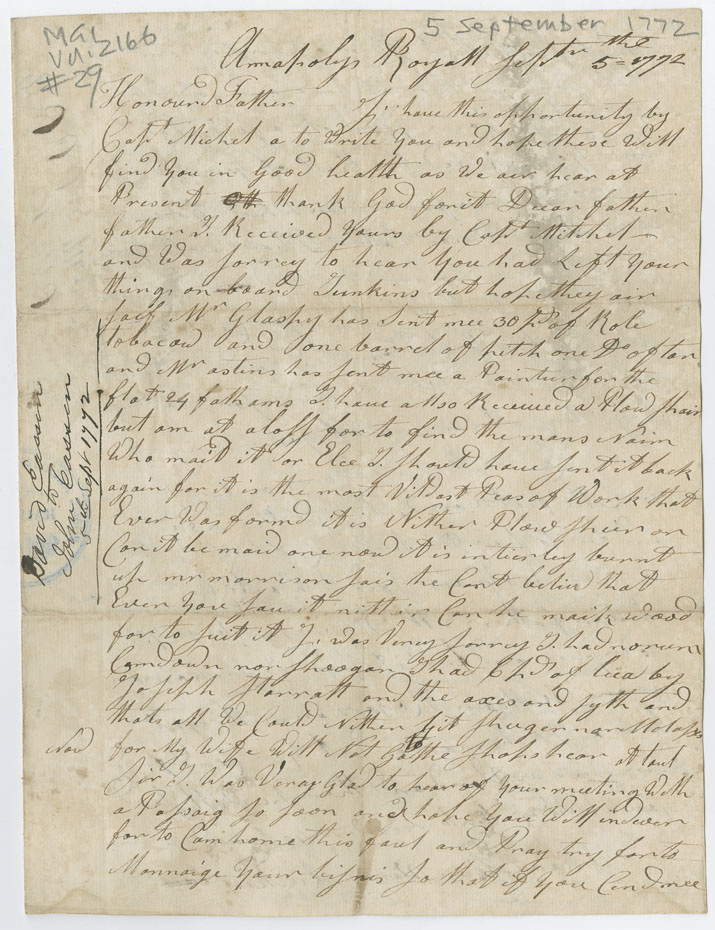 MG1
Vol. 2166
#29
5 September 1772
Annapolys Royall Septm the 5=1772
Honourd Father I have this opportunity by
Capt Michel a to Write You and hope these Will
find You in Good health as We air hear at
Present thank God forit Dear father
father I Received Yours by Capt Mitchel
and Was Sorrey to hear You had Left Your
things on board Junkins but hope they air
saif Mr Glaspy has Sent mee 30 pd of Role
tobacow and one barrel of pitch one Do of tar
and Mr astins has sent mee a Paintur for the
flot 24 fathams I have allso Received a Plow Shair
but am at a loss for to find the mans Naim
Who maid it or Elce I Should have sent it back
again for it is the most Peas of Work that
Ever Was formd it is Nither Plow Sheer or
Can it be maid one now it is intierley burnt
up mr morrison sais he Cant beliv that
Ever You sau it nithir Can he maik Wood
for to suit it I Was Verey Sorrey I had no rum
Comdown nor Shoogar I had 6 pd of tea by
Joseph Starratt and the axes and syth and
thats all We Could Nither git Shuger nar Molases
for My Wife Will Not Go to the Shops hear at taul
Now
Sir I Was Veray Glad to hear of Your meeting With
a Passaig so soon and hope You Will indever
for to Cam home this faul and Pray try for to
Mannaige Your bisnis so that if You Can Mee
David
to
John
5th Sept 1772